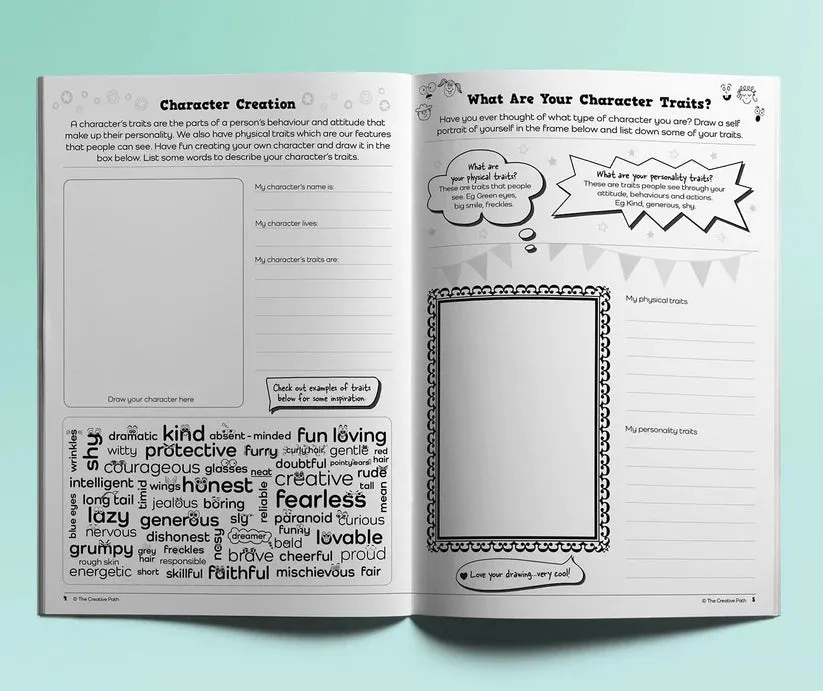 Character Creation
A character's traits are the parts of a person's behaviour and attitude that
make up their personality. We also have physical traits which are our features
that people can see. Have fun creating your own character and draw it in the
box below. List some words to describe your character's traits.
My character's name is:
My character lives:
My character's traits are:
Draw your character here
Check out examples of traits
below for some inspiration.
wrinkles
shy
dramatic kind absent-minded fun loving
witty protective furry curly hair gentle red hair
courageous glasses neat doubtful pointy ears
intelligent wings honest creative rude
tall
long tail timid jealous boring reliable fearless mean
blue eyes
lazy generous sly paranoid curious
nervous dishonest nosy dreamer funny bald lovable
grumpy grey hair freckles brave cheerful proud
rough skin responsible
energetic short skillful faithful mischievous fair
© The Creative Path
What Are Your Character Traits?
Have you ever thought of what type of character you are? Draw a self
portrait of yourself in the frame below and list down some of your traits.
What are
your physical traits?
These are traits that people
see. Eg Green eyes,
big smile, freckles.
What are your personality traits?
These are traits people see through your
attitude, behaviours and actions.
Eg Kind, generous, shy.
My physical traits
My personality traits
Love your drawing...very cool!
© The Creative Path 5